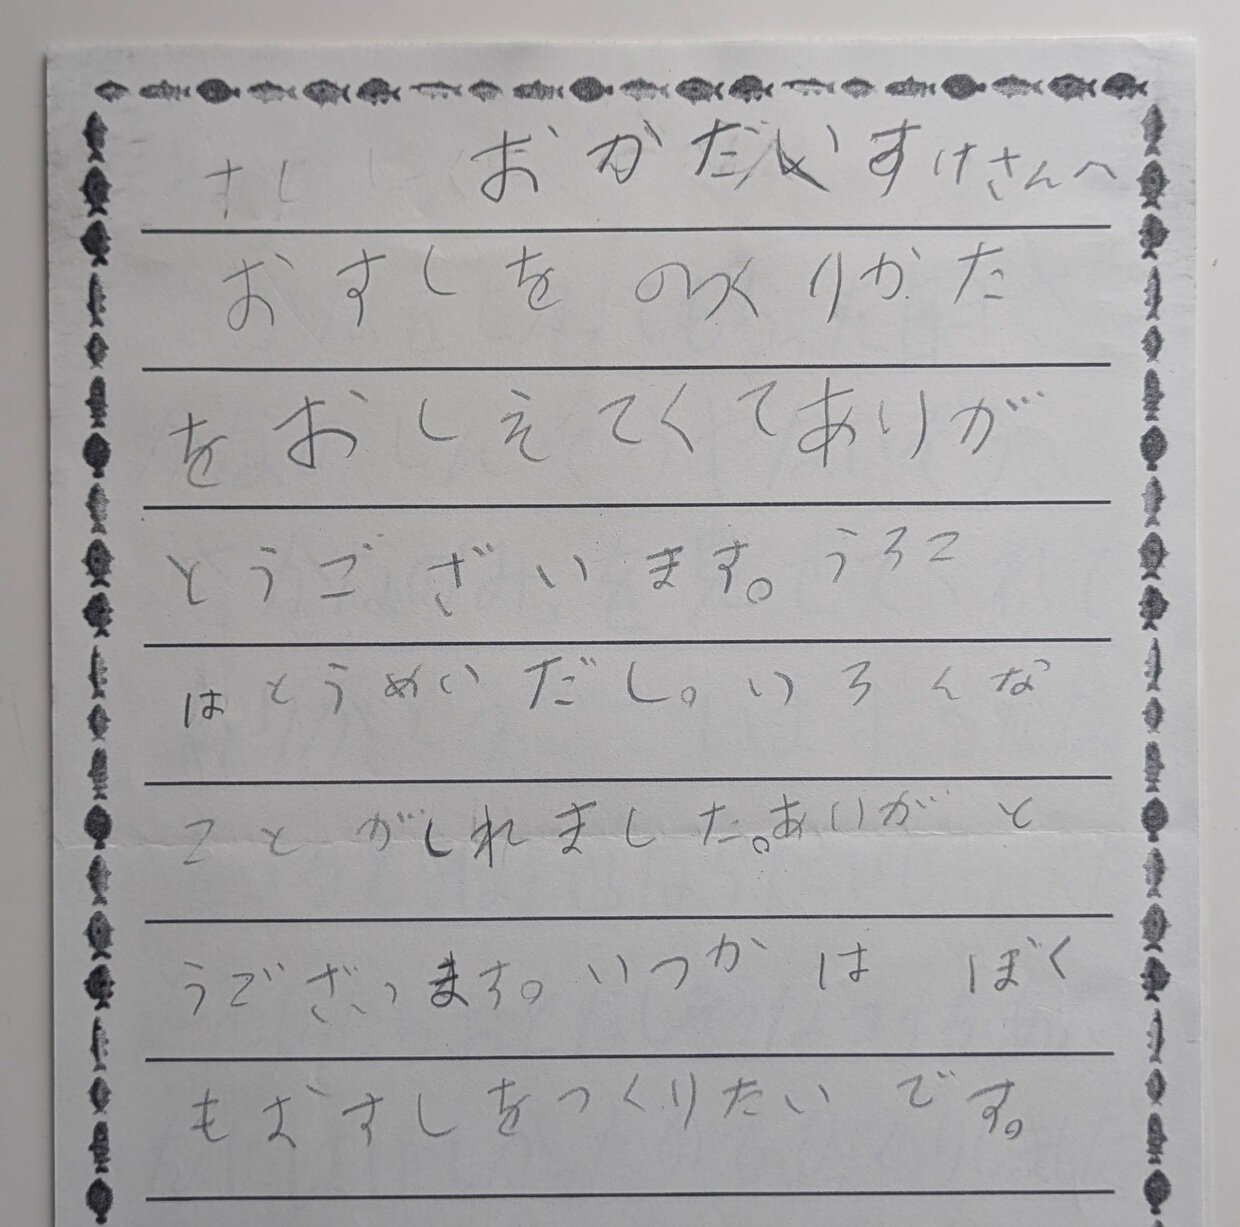 おかだいすけさんへ
おすしをのつくりかた
をおしえてくてありが
とうございます。うろこ
はとうめいだし。いろんな
ことがしれました。ありがと
うございます。いつかはぼく
もおすしをつくりたいです。